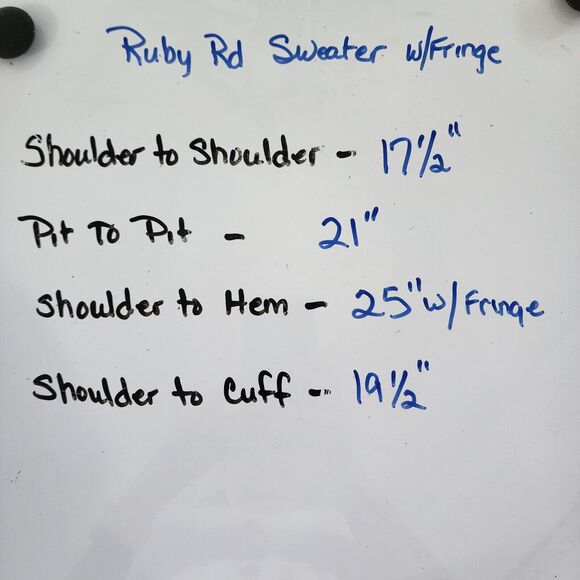 Ruby Rd Sweater w/Fringe
Shoulder to Shoulder - 17 1/2"
Pit To Pit - 21"
Shoulder to Hem - 25" w/Fringe
Shoulder to Cuff - 19 1/2"